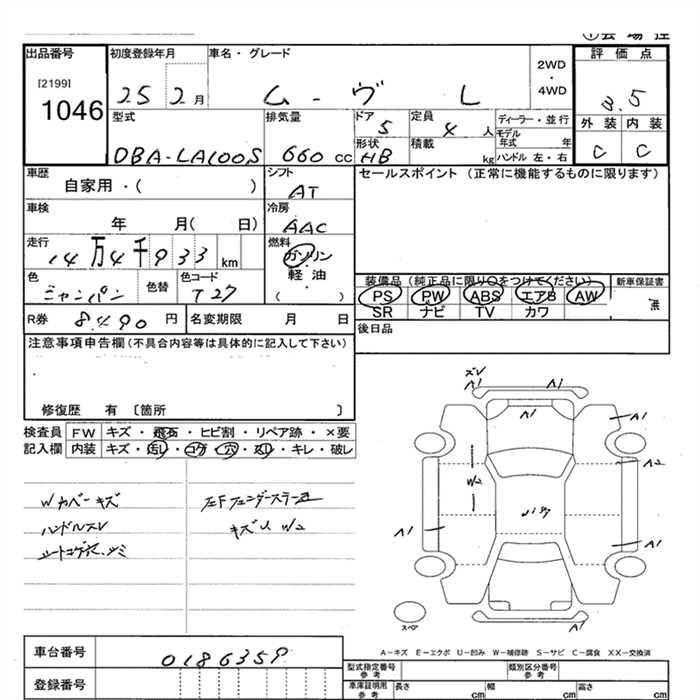 出品番号 初度登録年月 車名・グレード 評価点
[2199]
1046
25 2月 ムーヴ L 2WD・4WD 3.5
型式 排気量 ドア 5 定員 4人 ディーラー・並行 外装 内装
モデル年式 年
DBA-LA100S 660cc 形状 HB 積載 kg ハンドル 左・右 C C
車歴 シフト セールスポイント (正常に機能するものに限ります)
自家用・( ) AT
車検 冷房
年 月( 日) AAC
走行 燃料
14万4千933km ガソリン
軽油
( )
色 色替 色コード 装備品 (純正品に限り○をつけてください) 新車保証書
シャンパン T27 PS PW ABS エアB AW 無
SR ナビ TV カワ
R券 8,490円 名変期限 月 日 後日品
注意事項申告欄(不具合内容等は具体的に記入して下さい)
修復歴 有 〔箇所 〕
検査員 FW キズ・飛石・ヒビ割・リペア跡・×要
記入欄 内装 キズ・汚レ・コゲ・穴・スレ・キレ・破レ
Wカバーキズ
ハンドルスレ
シートコゲ穴、シミ
左Fフェンダーステー
キズU W2
ズレ
A1 A1
A1 A1
W2 A2
A1 A1
A1
スペア
A-キズ E-エクボ U-凹み W-補修跡 S-サビ C-腐食 XX-交換済
車台番号 0186359
登録番号
型式指定番号 参考 類別区分番号 参考
車庫証明用 参考 長さ cm 幅 cm 高さ cm